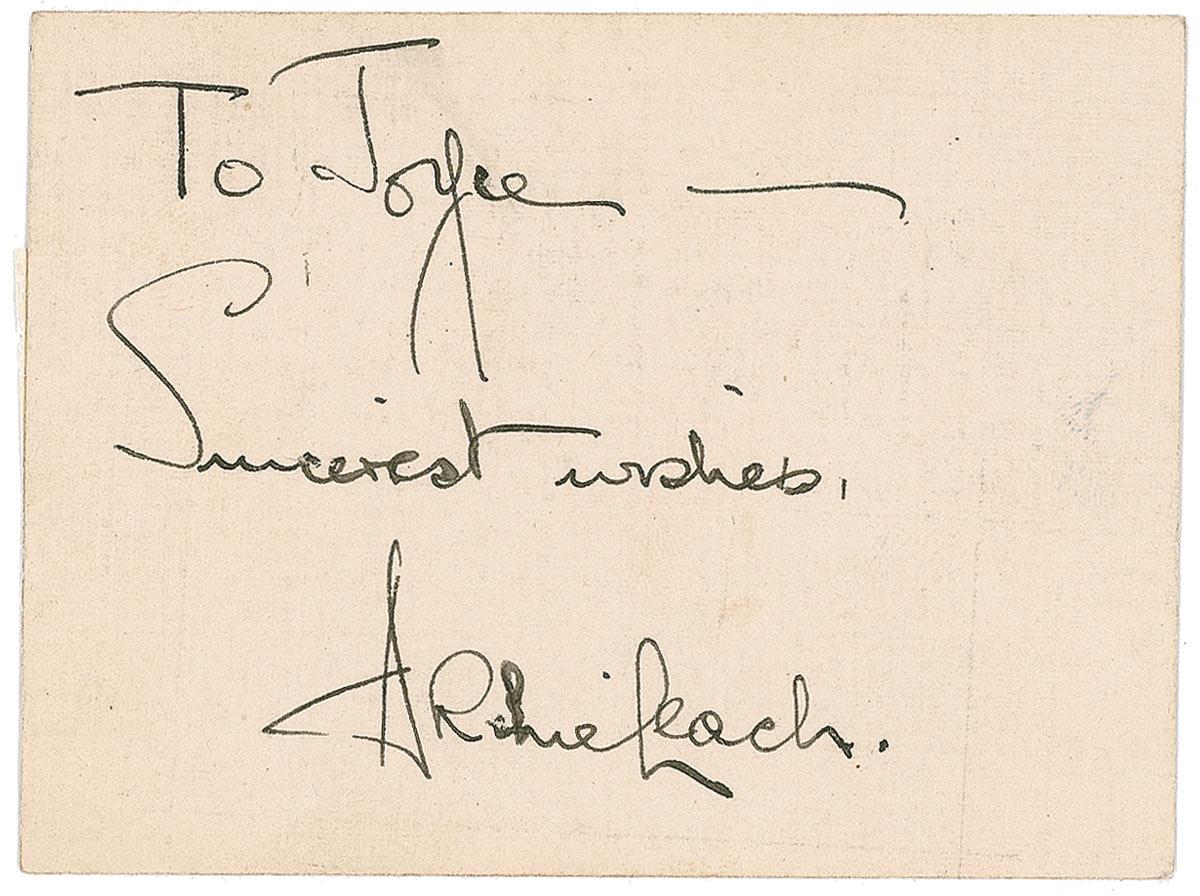 To Joyce —
Sincerest wishes,
Archie Leach.